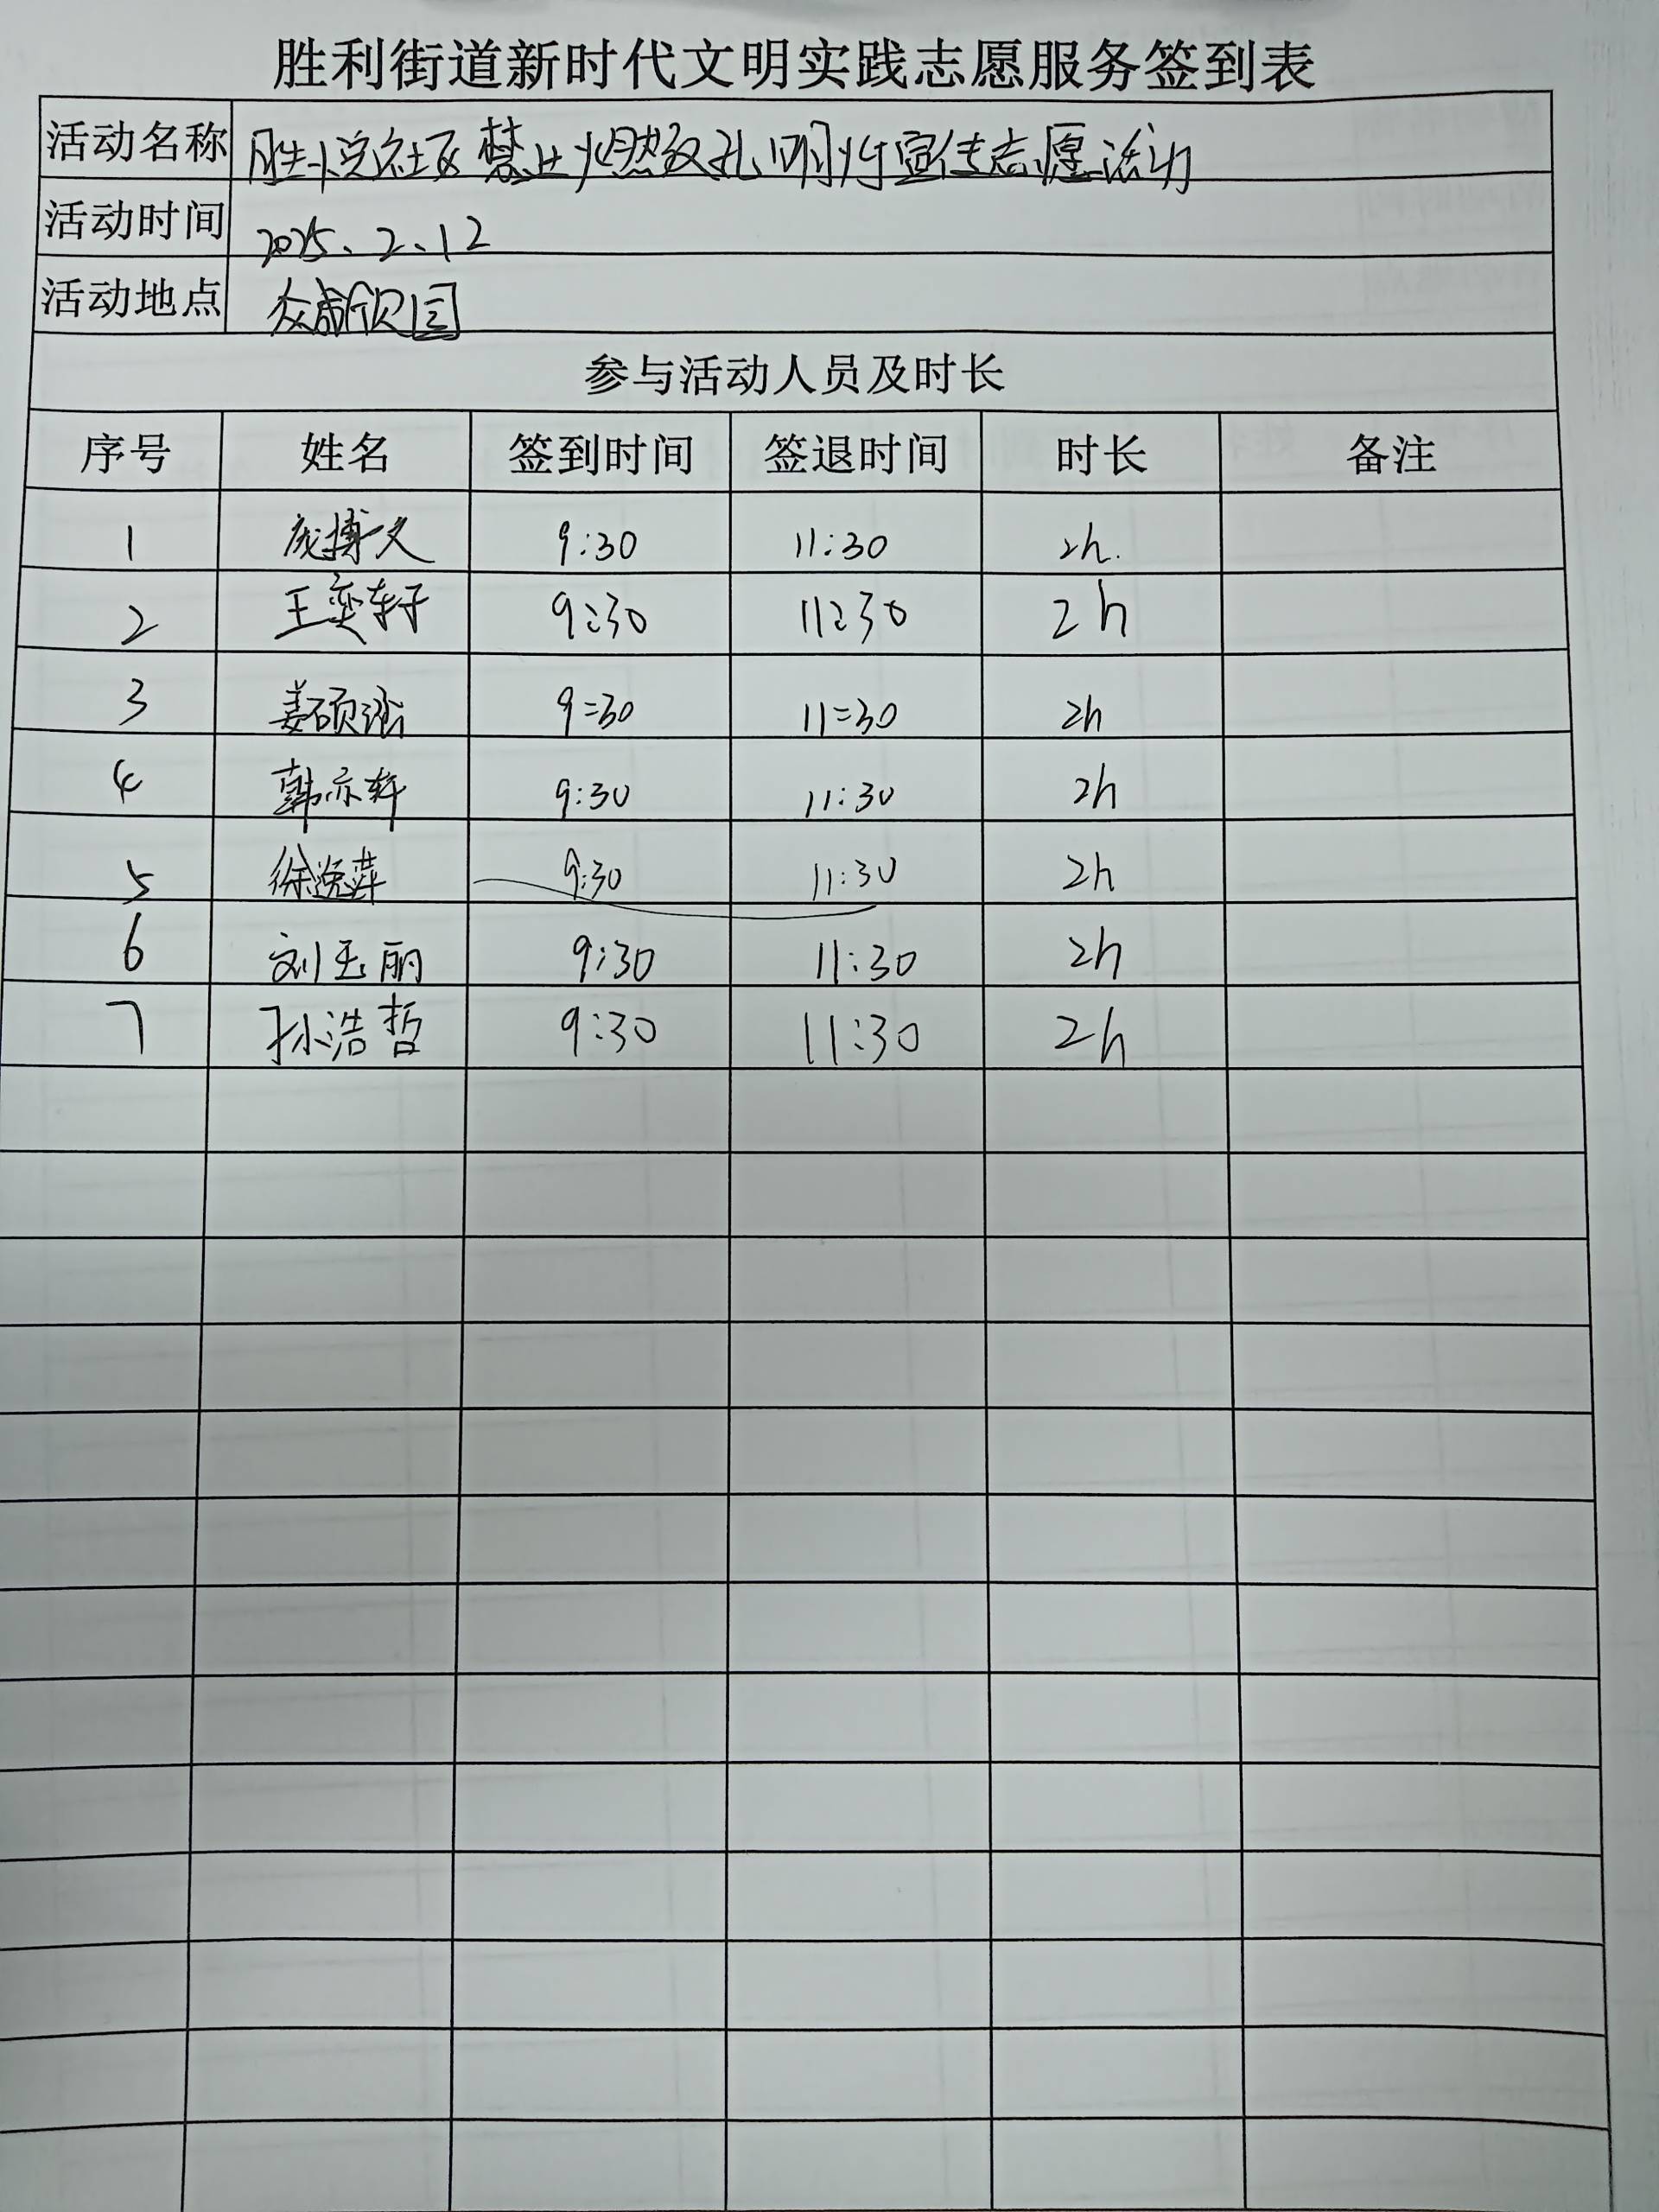 胜利街道新时代文明实践志愿服务签到表
活动名称 胜坨社区禁止燃放孔明灯宣传志愿活动
活动时间 2025、2、12
活动地点 众成欣园
参与活动人员及时长
序号 姓名 签到时间 签退时间 时长 备注
1 庞博文 9:30 11:30 2h.
2 王奕轩 9:30 11:30 2h
3 姜硕 9:30 11:30 2h
4 韩亦轩 9:30 11:30 2h
5 徐逸萍 9:30 11:30 2h
6 刘玉丽 9:30 11:30 2h
7 孙浩哲 9:30 11:30 2h